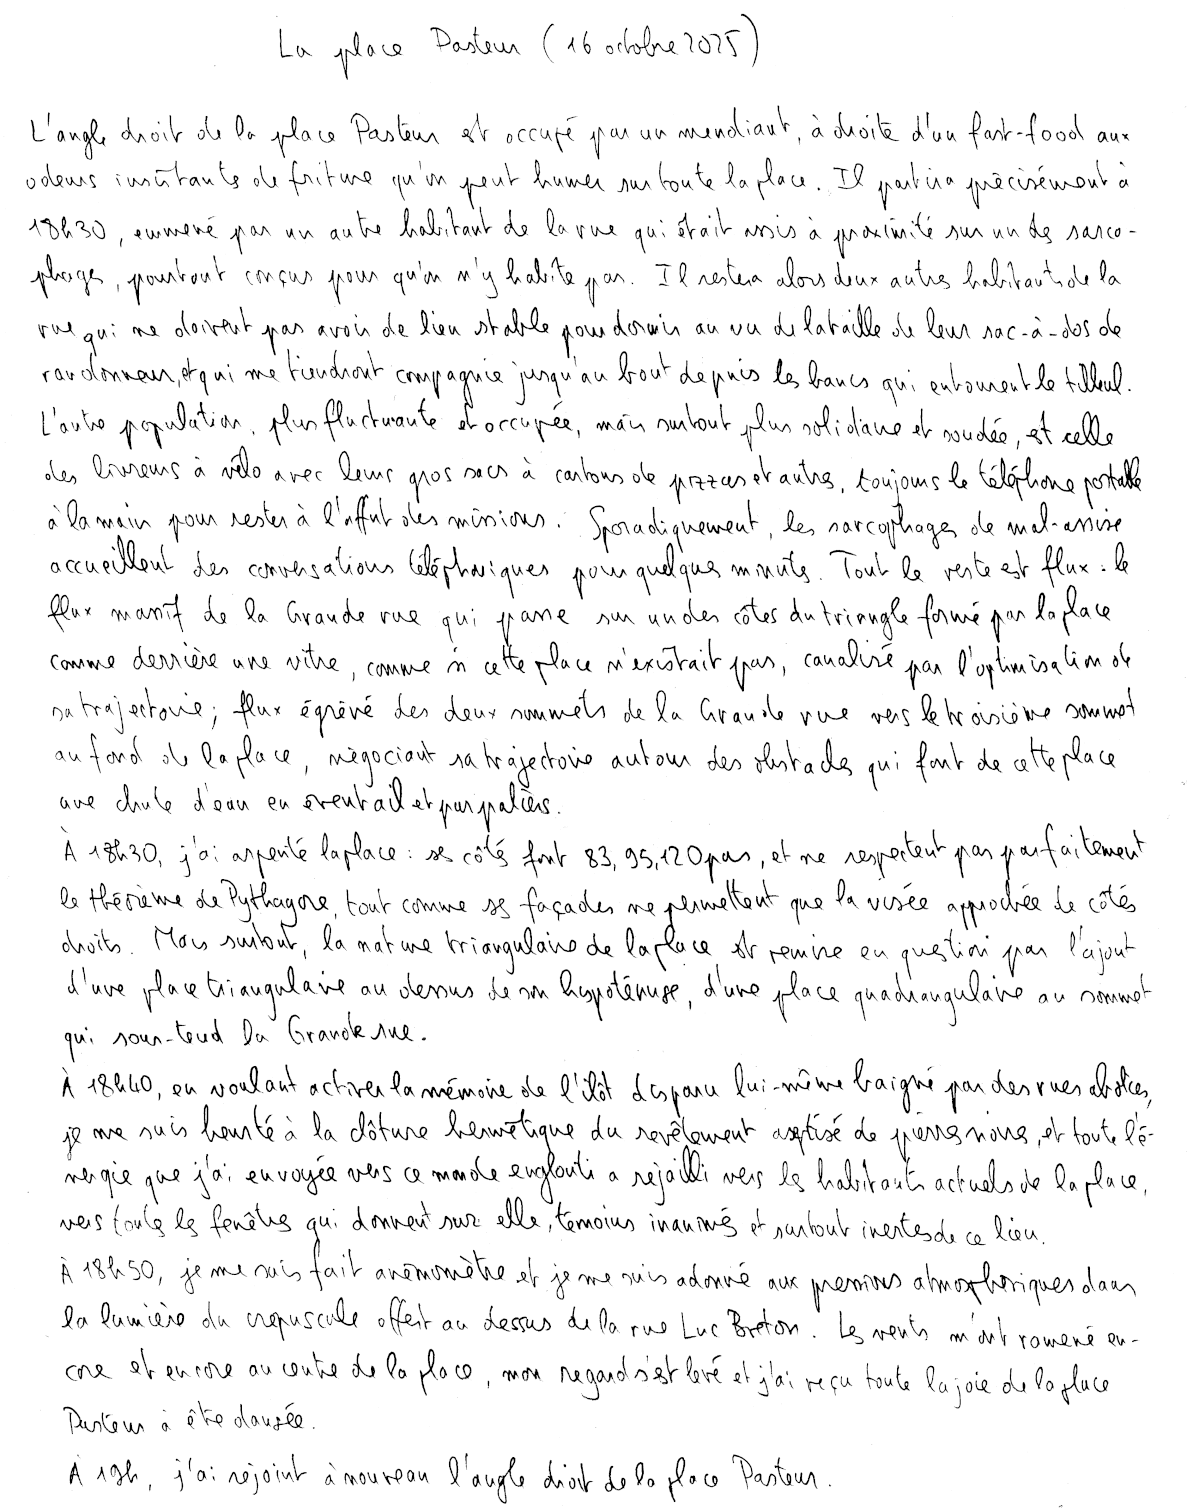 La place Pasteur (16 octobre 2025)
L'angle droit de la place Pasteur est occupé par un mendiant, à droite d'un fast-food aux
odeurs insistantes de friture qu'on peut humer sur toute la place. Il partira précisément à
18h30, emmené par un autre habitant de la rue qui était assis à proximité sur un des sarco-
phages, pourtant conçus pour qu'on n'y habite pas. Il restera alors deux autres habitants de la
rue qui ne doivent pas avoir de lieu stable pour dormir au vu de la taille de leur sac-à-dos de
randonneur, et qui me tiendront compagnie jusqu'au bout depuis les bancs qui entourent le tilleul.
L'autre population, plus fluctuante et occupée, mais surtout plus solidaire et soudée, est celle
des livreurs à vélo avec leurs gros sacs à cartons de pizzas et autres, toujours le téléphone portable
à la main pour rester à l'affut des missions. Sporadiquement, les sarcophages de mal-assise
accueillent des conversations téléphoniques pour quelques minutes. Tout le reste est flux : le
flux massif de la Grande rue qui passe sur un des côtés du triangle formé par la place
comme derrière une vitre, comme si cette place n'existait pas, canalisé par l'optimisation de
sa trajectoire ; flux égréné des deux sommets de la Grande rue vers le troisième sommet
au fond de la place, négociant sa trajectoire autour des obstacles qui font de cette place
une chute d'eau en éventail et par paliers.
À 18h30, j'ai arpenté la place : ses côtés font 83, 95, 120 pas, et ne respectent pas parfaitement
le théorème de Pythagore, tout comme ses façades ne permettent que la visée approchée de côtés
droits. Mais surtout, la nature triangulaire de la place est remise en question par l'ajout
d'une place triangulaire au dessus de son hypoténuse, d'une place quadrangulaire au sommet
qui sous-tend la Grande rue.
À 18h40, en voulant activer la mémoire de l'îlot disparu lui-même baigné par des rues abolies,
je me suis heurté à la clôture hermétique du revêtement aseptisé de pierres noires, et toute l'é-
nergie que j'ai envoyée vers ce monde englouti a rejailli vers les habitants actuels de la place,
vers toutes les fenêtres qui donnent sur elle, témoins inanimés et surtout inertes de ce lieu.
À 18h50, je me suis fait anémomètre et je me suis adonné aux pressions atmosphériques dans
la lumière du crépuscule offert au dessus de la rue Luc Breton. Les vents m'ont ramené en-
core et encore au centre de la place, mon regard s'est levé et j'ai reçu toute la joie de la place
Pasteur à être dansée.
À 19h, j'ai rejoint à nouveau l'angle droit de la place Pasteur.